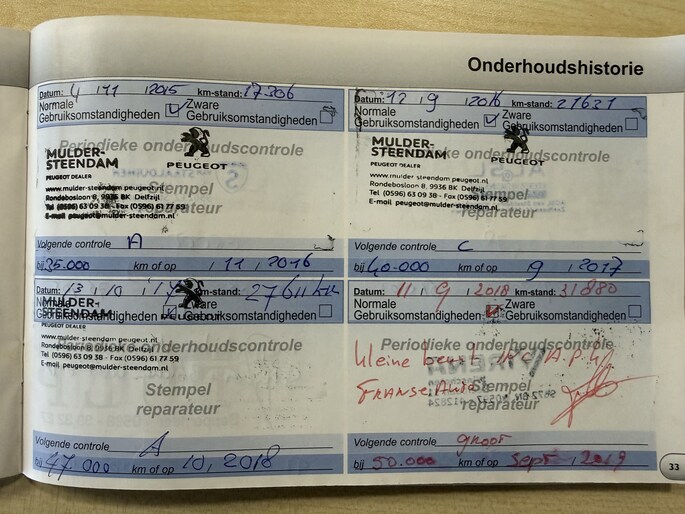 Onderhoudshistorie
Datum: 4 , 11 , 2015 km-stand: 17306
Normale Gebruiksomstandigheden Zware Gebruiksomstandigheden
Periodieke onderhoudscontrole
MULDER-
STEENDAM
PEUGEOT
PEUGEOT DEALER
www.mulder-steendam.peugeot.nl
Rondeboslaan 8, 9936 BK Delfzijl
Tel (0596) 63 09 38 - Fax (0596) 61 77 59
E-mail peugeot@mulder-steendam.nl
Stempel
reparateur
Volgende controle A
bij 35.000 km of op , 11 , 2016
Datum: 12 , 9 , 2016 km-stand: 21621
Normale Gebruiksomstandigheden Zware Gebruiksomstandigheden
Periodieke onderhoudscontrole
MULDER-
STEENDAM
PEUGEOT
PEUGEOT DEALER
www.mulder-steendam.peugeot.nl
Rondeboslaan 8, 9936 BK Delfzijl
Tel (0596) 63 09 38 - Fax (0596) 61 77 59
E-mail peugeot@mulder-steendam.nl
Stempel
reparateur
Volgende controle C
bij 40-000 km of op 9 , 2017
Datum: 13 , 10 , km-stand: 27611 km
Normale Gebruiksomstandigheden Zware Gebruiksomstandigheden
MULDER-
STEENDAM
PEUGEOT
PEUGEOT DEALER
www.mulder-steendam.peugeot.nl
Periodieke onderhoudscontrole
Rondeboslaan 8, 9936 BK Delfzijl
Tel (0596) 63 09 38 - Fax (0596) 61 77 59
E-mail peugeot@mulder-steendam.nl
Stempel
reparateur
Volgende controle A
bij 47.000 km of op 10, 2018
Datum: 11 , 9 , 2018 km-stand: 31880
Normale Gebruiksomstandigheden Zware Gebruiksomstandigheden
Periodieke onderhoudscontrole
kleine beurt
Franse Auto
Stempel
reparateur
Volgende controle groot
bij 50.000 km of op Sept , 2019
33